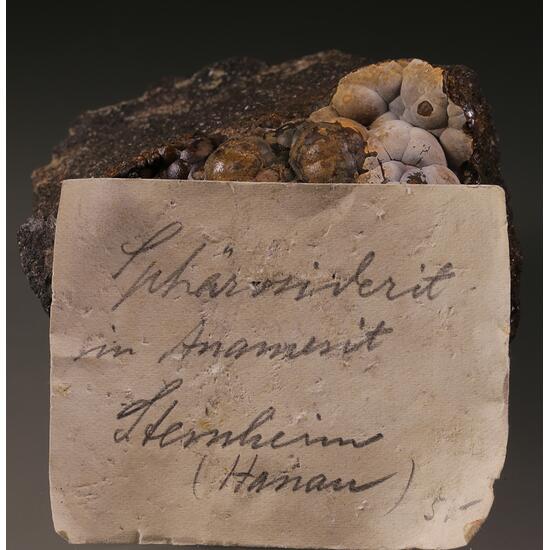 Sphärosiderit
in Anamesit
Steinheim
(Hanau)
5.-